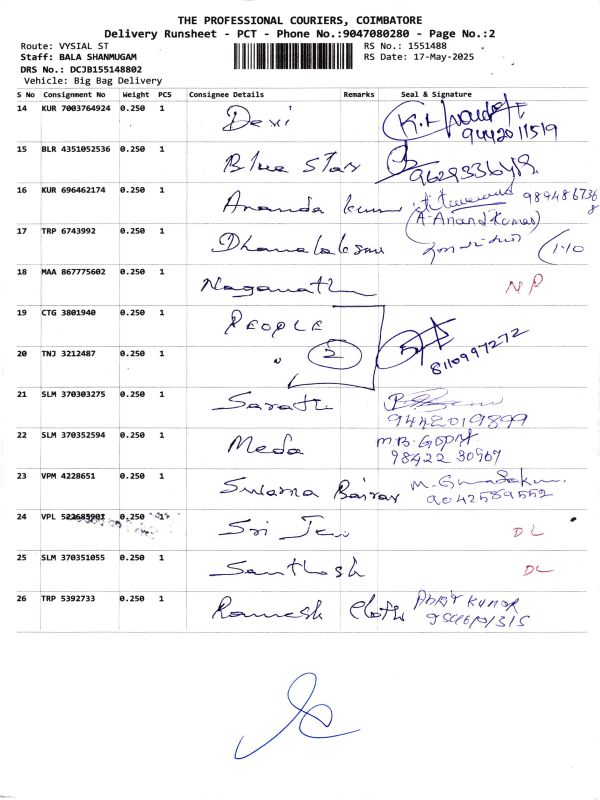 THE PROFESSIONAL COURIERS, COIMBATORE
Delivery Runsheet - PCT - Phone No.:9047080280 - Page No.:2
Route: VYSIAL ST
RS No.: 1551488
Staff: BALA SHANMUGAM
RS Date: 17-May-2025
DRS No.: DCJB155148802
Vehicle: Big Bag Delivery
S No Consignment No Weight PCS Consignee Details Remarks Seal & Signature
14 KUR 7003764924 0.250 1 Devi
9442011519
15 BLR 4351052536 0.250 1 Blue Star
16 KUR 696462174 0.250 1 Ananda kumar
(A. Anand Kumar)
17 TRP 6743992 0.250 1
18 MAA 867775602 0.250 1 Naganath NP
19 CTG 3801940 0.250 1 PEOPLE
20 TNJ 3212487 0.250 1 " 2
8110997272
21 SLM 370303275 0.250 1 Sarath
9442019899
22 SLM 370352594 0.250 1 Meda M.B. GOPI
98422 30967
23 VPM 4228651 0.250 1 Swarna
9042589552
24 VPL 522685901 0.250 1 Sri DL
25 SLM 370351055 0.250 1 Santhosh DL
26 TRP 5392733 0.250 1 Ramesh Cloth KUMAR